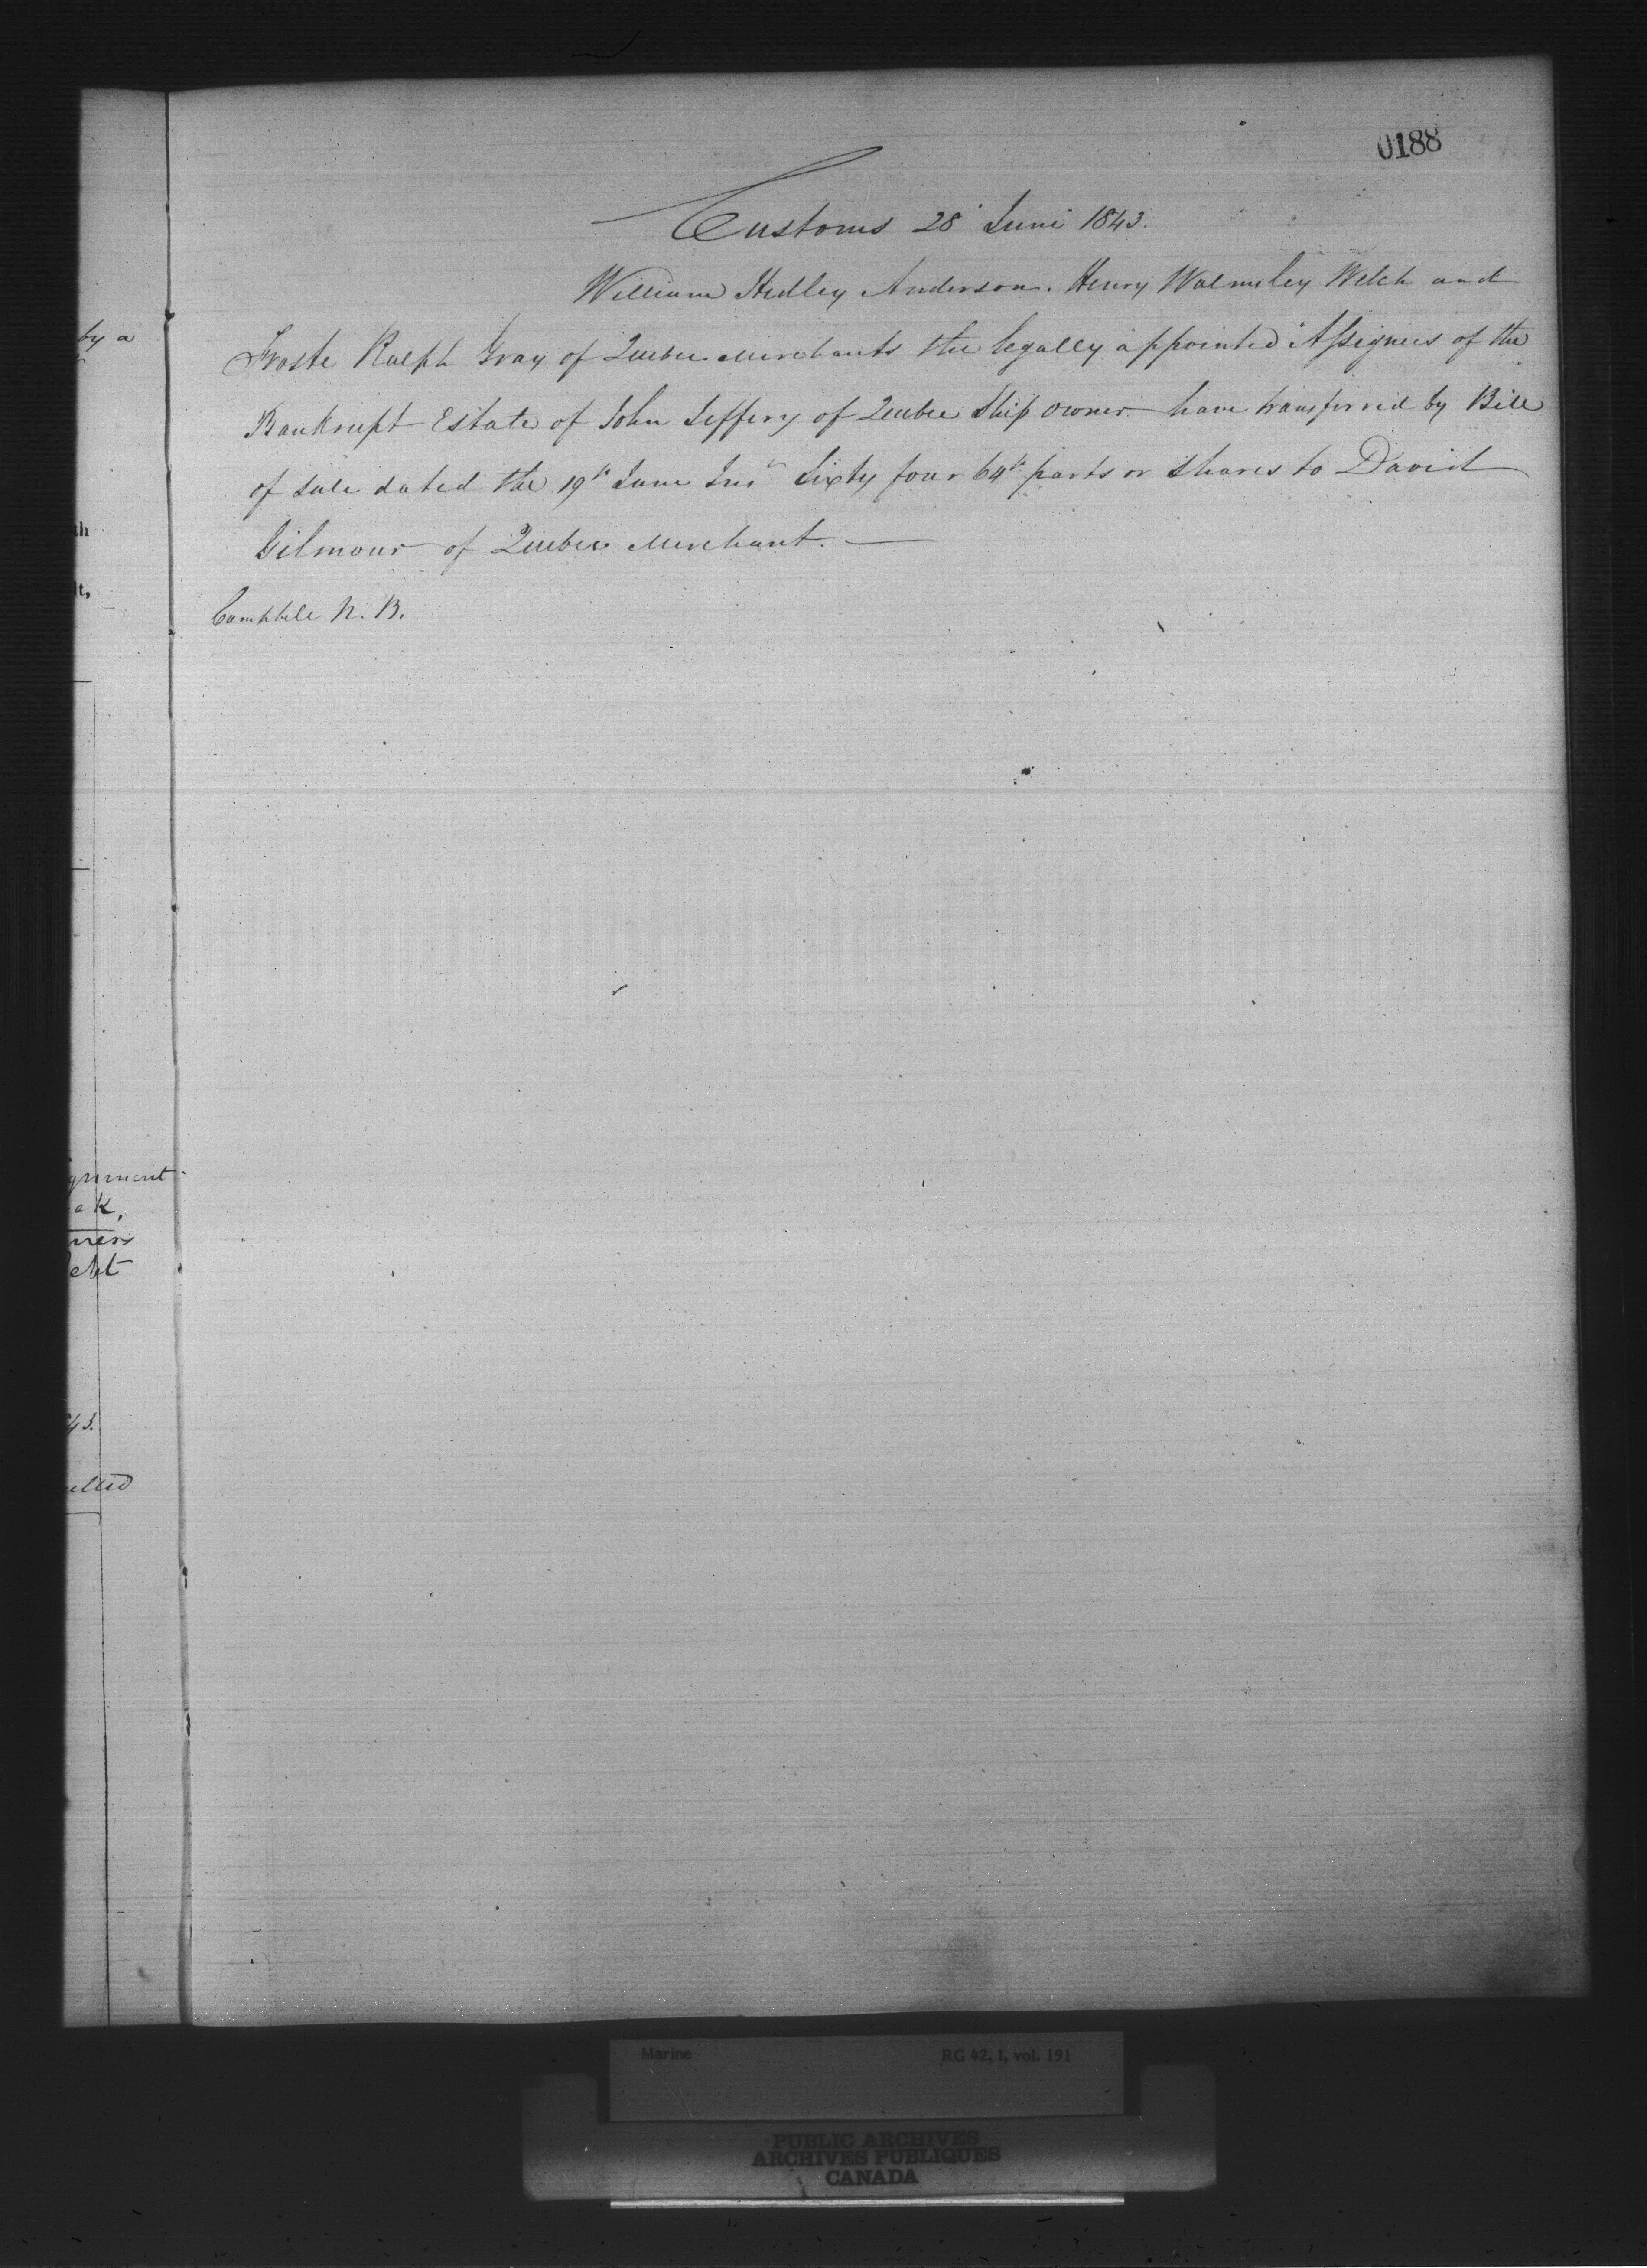 0188
Customs 28 June 1843.
William Hedley Anderson. Henry Walmsley Welch and
Froste Ralph Gray of Quebec Merchants the legally appointed Assignees of the
Bankrupt Estate of John Jeffery of Quebec Ship owner have transferred by Bill
of sale dated the 19th June Inst Sixty four 64th parts or shares to David
Gilmour of Quebec Merchant.
Campbell N. B.
by a
th
lt,
gnment
ak,
ners
ebt
43.
elled
Marine RG 42, I, vol. 191
PUBLIC ARCHIVES
ARCHIVES PUBLIQUES
CANADA